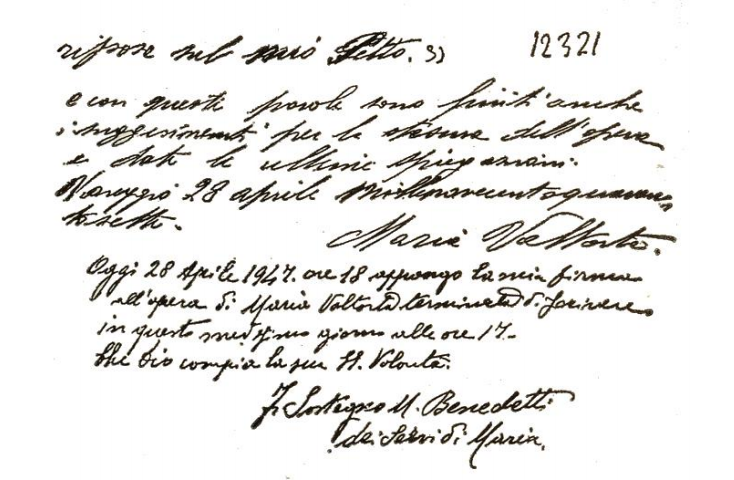 riposa sul mio Petto. »  12321
e con queste parole sono finiti anche
i suggerimenti per la stesura dell'opera
e date le ultime spiegazioni.
Viareggio 28 aprile millenovecentoquaran
tasette.
Maria Valtorta.
Oggi 28 Aprile 1947. ore 18 appongo la mia firma
all'opera di Maria Valtorta terminata di scrivere
in questo medesimo giorno alle ore 17.-
Che Dio compia la sua SS. Volontà.
F. Sostegno M. Benedetti
dei Servi di Maria.